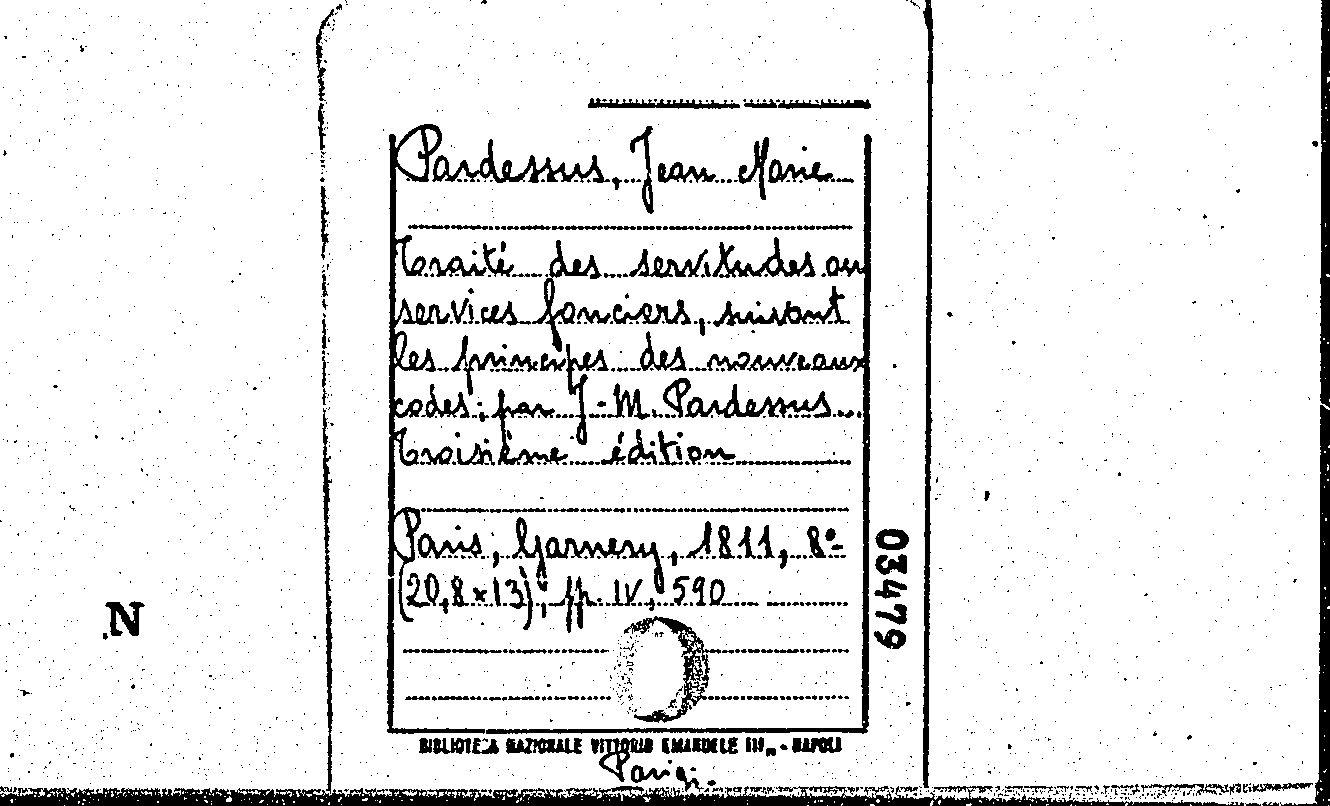 Pardessus, Jean Marie
Traité des servitudes ou
services fonciers, suivant
les principes des nouveaux
codes; par J.-M. Pardessus...
Troisième édition
Paris, Garnery, 1811, 8º
(20,8×13); pp. IV, 590
03479
N
BIBLIOTECA NAZIONALE VITTORIO EMANUELE III„ - NAPOLI
Parigi.